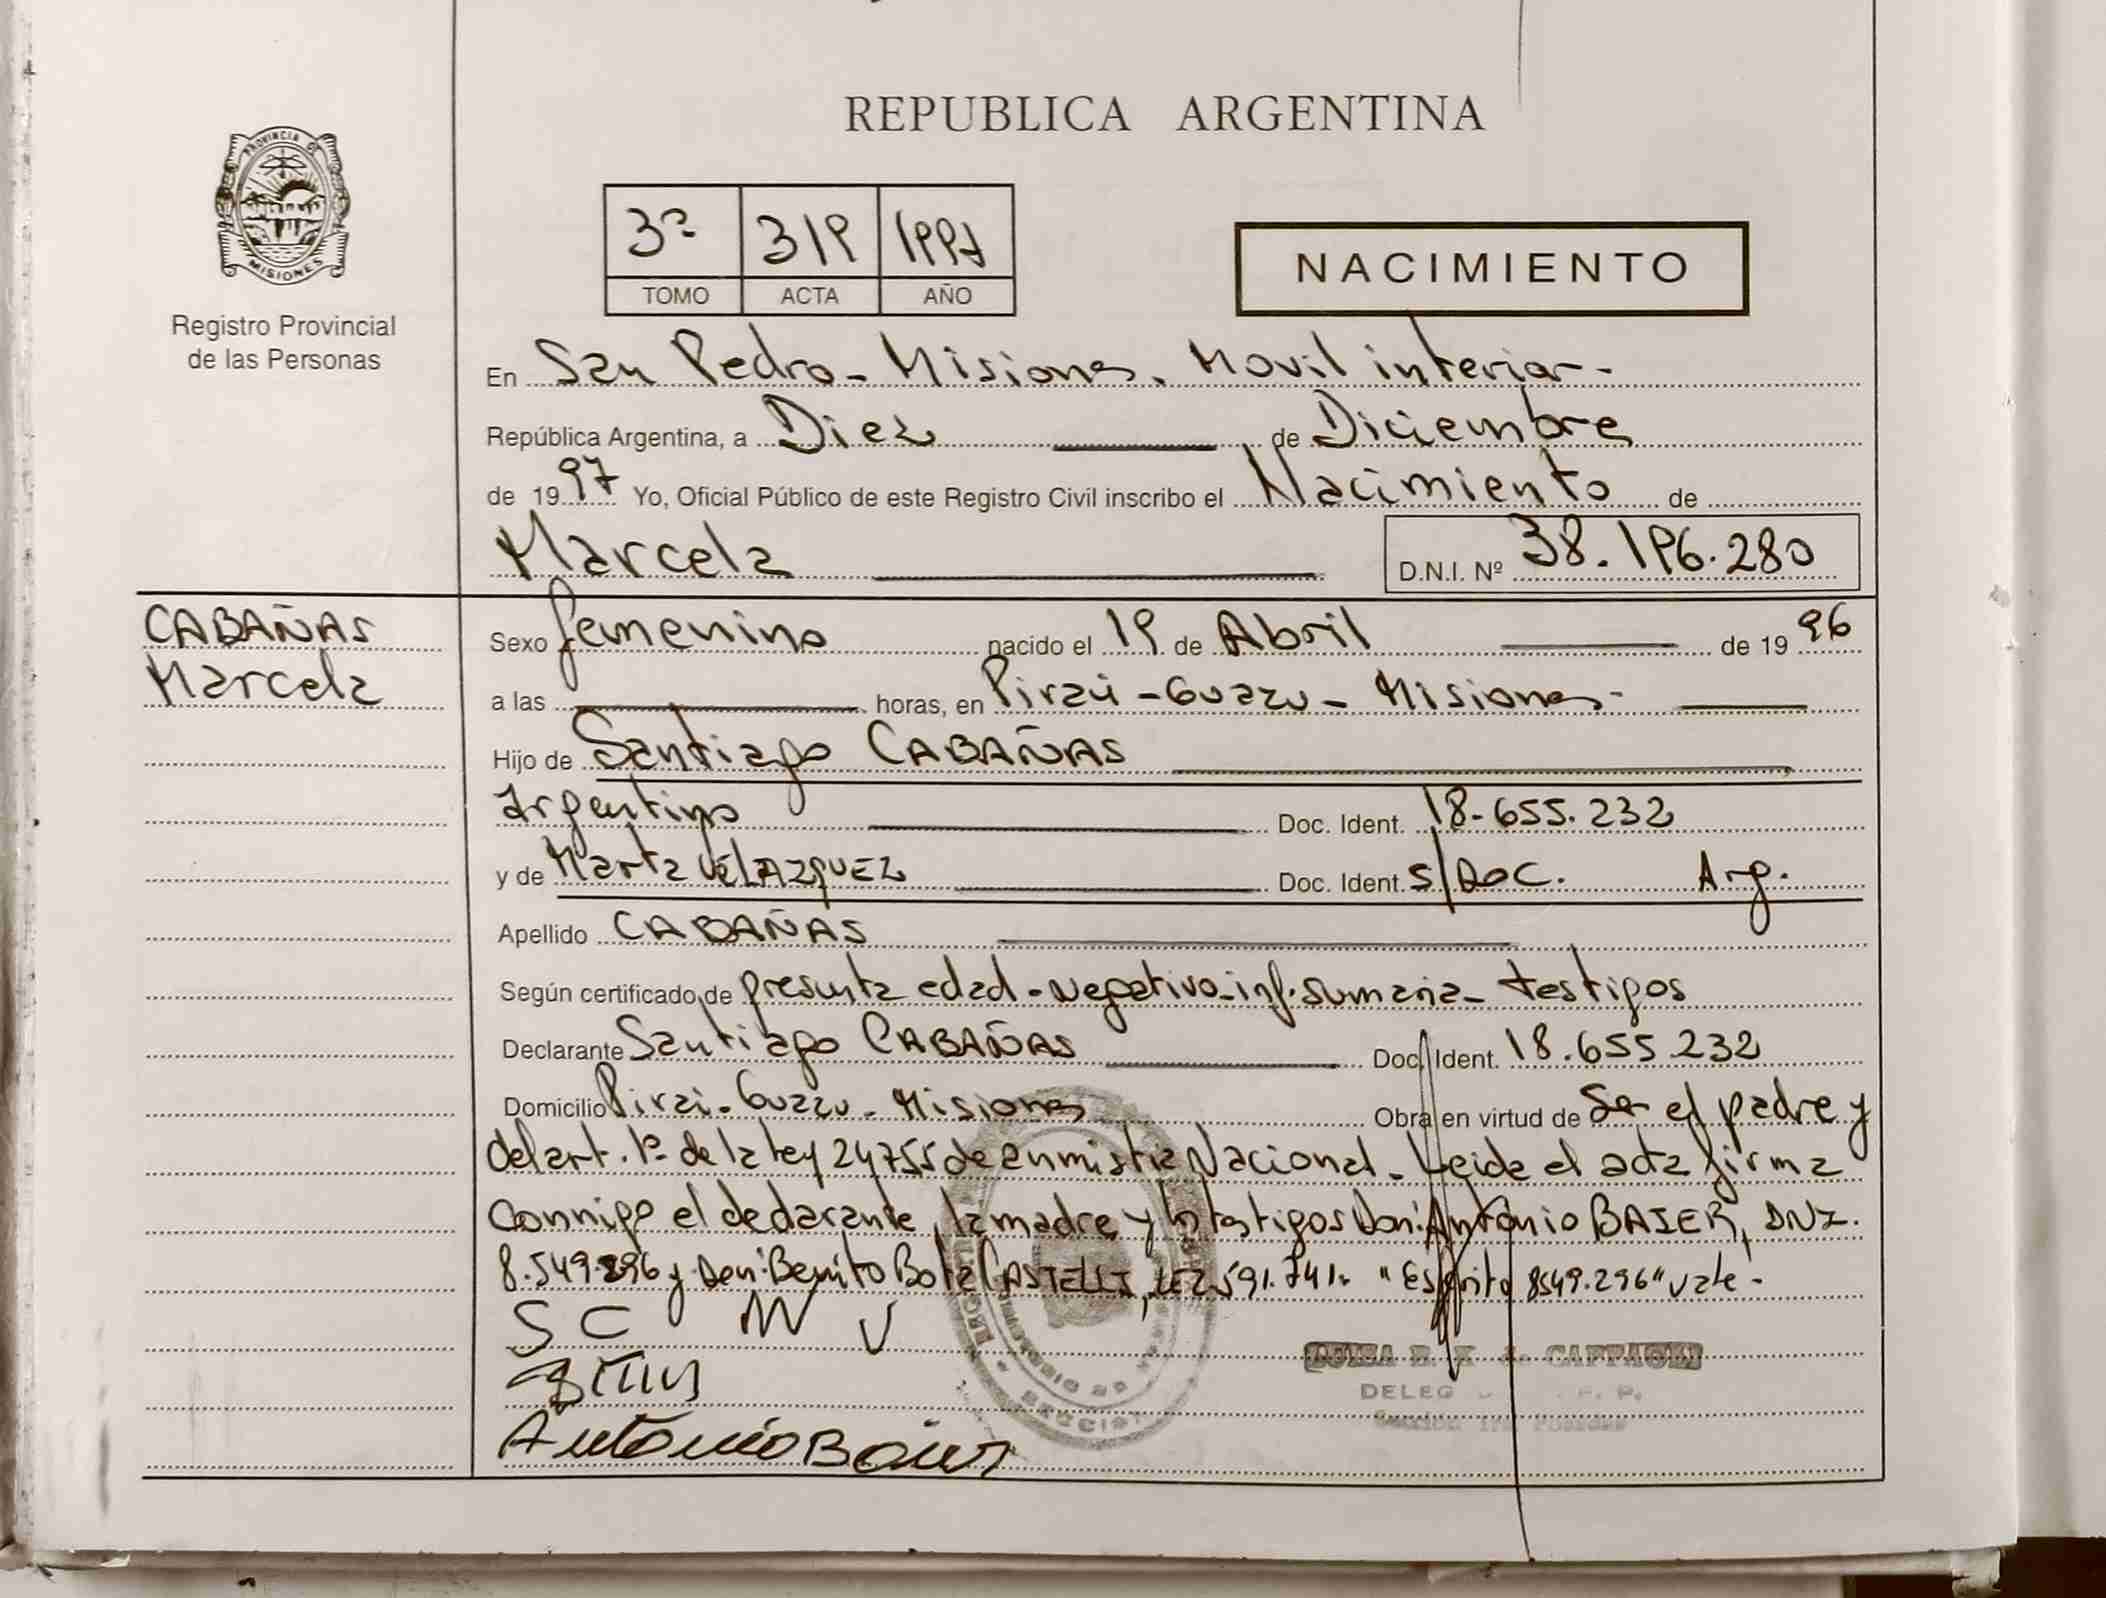 REPUBLICA ARGENTINA
PROVINCIA DE
MISIONES
Registro Provincial
de las Personas
3º 319 1997
TOMO ACTA AÑO
NACIMIENTO
En San Pedro - Misiones. Movil interior -
República Argentina, a Diez de Diciembre
de 1997 Yo, Oficial Público de este Registro Civil inscribo el Nacimiento de
Marcela D.N.I. Nº 38.196.280
CABAÑAS
Marcela
Sexo femenino nacido el 19 de Abril de 1996
a las horas, en Piraú - Guazu - Misiones -
Hijo de Santiago CABAÑAS
Argentino Doc. Ident. 18.655.232
y de Marta VELAZQUEZ Doc. Ident. S/DOC. Arg.
Apellido CABAÑAS
Según certificado de presunta edad - negativo - inf. sumaria - testigos
Declarante Santiago CABAÑAS Doc. Ident. 18.655.232
Domicilio Pirai - Guazu - Misiones Obra en virtud de Ser el padre y
del art. 1º de la ley 24755 de enmistia Nacional. Leida el acta firma
conmigo el declarante, la madre y los testigos Don: Antonio BAIER, DNI.
8.549.296 y Don: Benito Bota CASTELLI, LE 2591.741. "Esp͏rito 8549.296" vale -
S C M V
Antonio Baier
DELEG